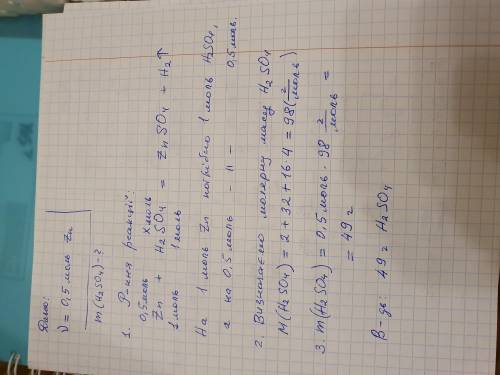 Дано:
ν = 0,5 моль Zn
m(H₂SO₄) - ?
1. Р-ння реакції:
0,5 моль x моль
Zn + H₂SO₄ = ZnSO₄ + H₂↑
1 моль 1 моль
На 1 моль Zn потрібно 1 моль H₂SO₄,
а на 0,5 моль - " - 0,5 моль.
2. Визначаємо молярну масу H₂SO₄
M(H₂SO₄) = 2 + 32 + 16·4 = 98 (г/моль)
3. m(H₂SO₄) = 0,5 моль · 98 г/моль =
= 49 г
В-дь: 49 г H₂SO₄